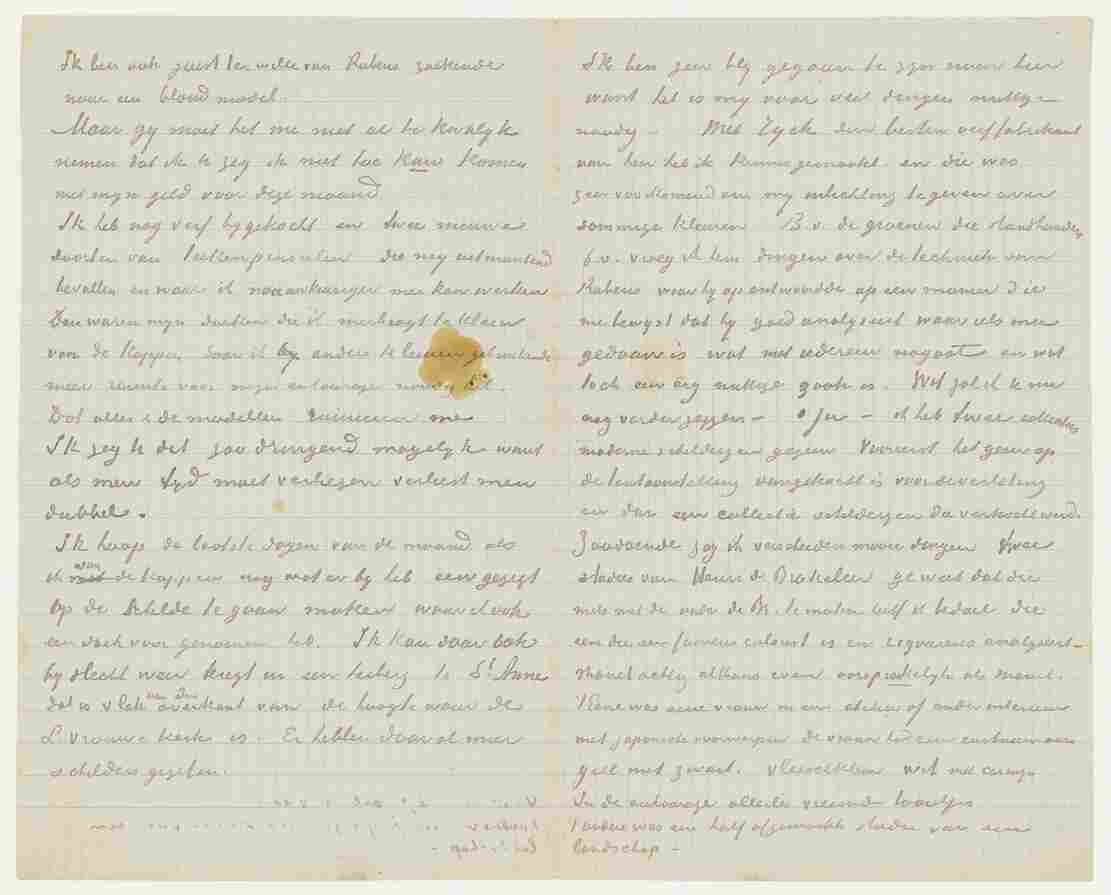 Ik ben ook juist ter wille van Rubens zoekende
naar een blond model.
Maar gy moet het me niet al te kwalyk
nemen dat ik U zeg ik niet toe kan komen
met myn geld voor deze maand.
Ik heb nog verf bygekocht en twee nieuwe
soorten van penseelen die my uitmuntend
bevallen en waar ik nauwkeuriger mee kan werken
Dan waren myn doeken die ik meebragt te klein
van de koppen, daar ik by andere kleuren gebruikende
meer ruimte voor myn entourage noodig heb.
Dat alles & de modellen ruineeren me
Ik zeg U dit zoo dringend mogelyk want
als men tyd moet verliezen verliest men
dubbel.
Ik hoop de laatste dagen van de maand als
ik aan de koppen nog wat er by heb een gezigt
op de Schelde te gaan maken waar ik ook
een doek voor genomen heb. Ik kan daar ook
by slecht weer terecht in een herberg te St Anne
dat is vlak aan den overkant van de hoogte waar de
L. vrouwe kerk is. Er hebben daar al meer
schilders gezeten.
Ik ben zeer bly gegaan te zyn naar hier
want het is my voor veel dingen nuttig &
noodig – Met Tyck den besten verffabrikant
van hier heb ik kennis gemaakt en die was
zeer voorkomend om my inlichting te geven over
sommige kleuren B.v. de groenen die standhouden
b.v. vroeg ik hem dingen over de techniek van
Rubens waar hy op antwoordde op een manier die
me bewyst dat hy goed analyseert waar iets mee
gedaan is wat niet iedereen nagaat en wat
toch een erg nuttige zaak is. Wat zal ik U nu
nog verder zeggen – o ja – ik heb twee collecties
moderne schilderyen gezien Vooreerst hetgeen op
de tentoonstelling aangekocht is voor de verloting
en dan een collectie schilderyen die verkocht werd.
Zoodoende zag ik verscheiden mooie dingen twee
studies van Henri de Brakeleer gy weet dat die
niets met de oude de B. te maken heeft ik bedoel die
een die een fameus colorist is en rigoureus analyseert –
Manet achtig althans even oorspronkelyk als Manet.
1 Eene was eene vrouw in een atelier of ander interieur
met japonsche voorwerpen de vrouw had een costuum aan
geel met zwart. vleeschkleur wit met carmyn
In de entourage allerlei vreemde toontjes
1 andere was een half afgemaakte studie van een
landschap –